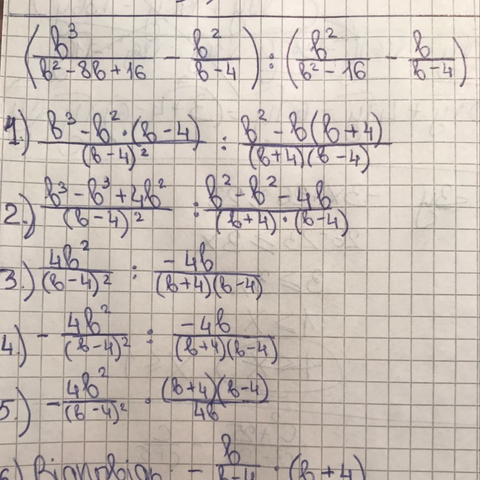 (b³/(b² - 8b + 16) - b²/(b - 4)) : (b²/(b² - 16) - b/(b - 4))
1.) (b³ - b² · (b - 4))/(b - 4)² : (b² - b(b + 4))/((b + 4)(b - 4))
2.) (b³ - b³ + 4b²)/(b - 4)² : (b² - b² - 4b)/((b + 4) · (b - 4))
3.) 4b²/(b - 4)² : -4b/((b + 4)(b - 4))
4.) - 4b²/(b - 4)² : -4b/((b + 4)(b - 4))
5.) - 4b²/(b - 4)² · ((b + 4)(b - 4))/4b
6) Відповідь: - b/(b - 4) · (b + 4)